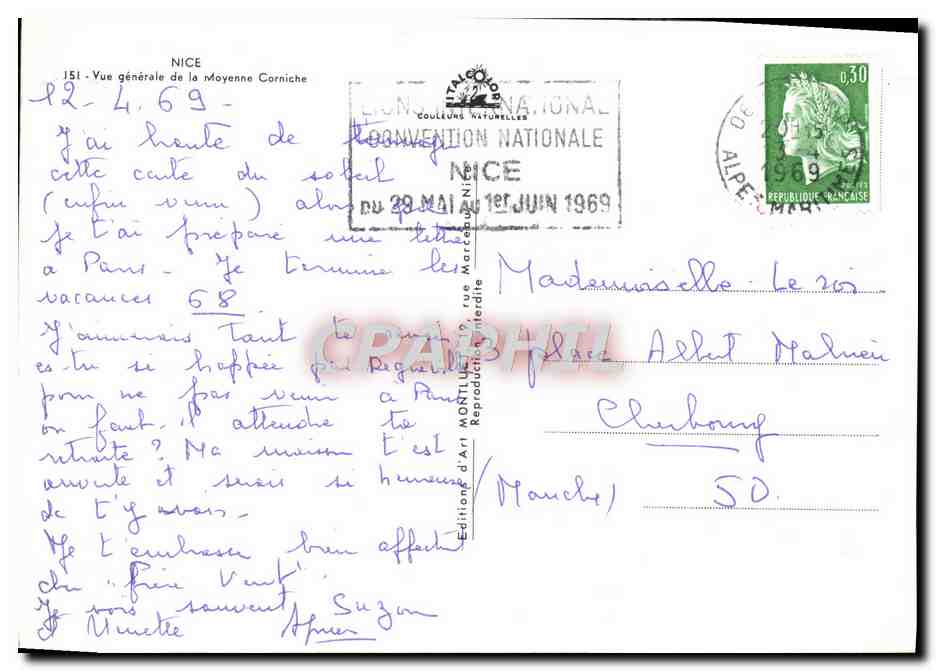 NICE
151 - Vue générale de la Moyenne Corniche
12-4.69-
J'ai honte de
cette carte du soleil
(enfin venu) alors que
je t'ai préparé une lettre
à Paris - Je termine les
vacances 68
J'aimerais tant te
es-tu si happée par
pour ne pas venir à Paris
ou faut-il attendre ta
retraite? Ma maison t'est
ouverte et serais si heureuse
de t'y avoir-
Je t'embrasse bien affect
"Frère Vent".
Je vois souvent Suzon
et Ninette
ITALCOLOR
COULEURS NATURELLES
LIONS INTERNATIONAL
CONVENTION NATIONALE
NICE
DU 29 MAI AU 1er JUIN 1969
Editions d'Art MONTLUET, 2, rue Marceau, Nice
Reproduction Interdite
0,30
POSTES
REPUBLIQUE FRANCAISE
1969
ALPES MARITIMES
Mademoiselle Le roi
3 place Albert
Cherbourg
(Manche) 50.
CPAPHIL